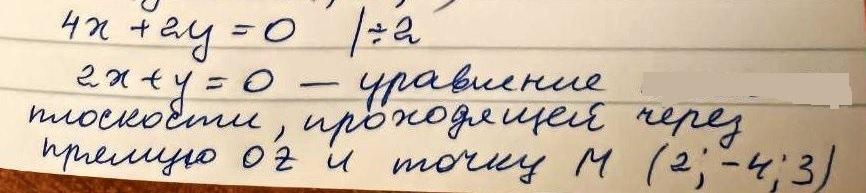 4x + 2y = 0 | ÷ 2
2x + y = 0 — уравнение
плоскости, проходящей через
прямую OZ и точку M (2; -4; 3)